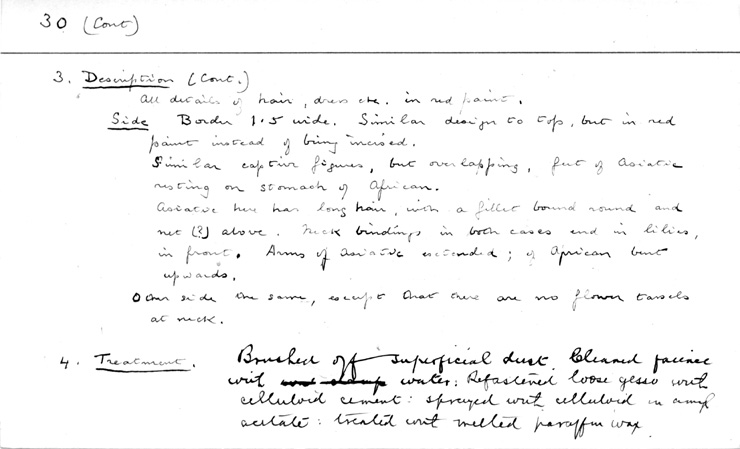 30 (Cont)
3. Description (Cont.)
All details of hair, dress etc. in red paint.
Side Border 1.5 wide. Similar design to top, but in red
paint instead of being incised.
Similar captive figures, but overlapping, feet of Asiatic
resting on stomach of African.
Asiatic here has long hair, with a fillet bound round and
net (?) above. Neck bindings in both cases end in lilies,
in front. Arms of Asiatic extended; of African bent
upwards.
Other side the same, except that there are no flower tassels
at neck.
4. Treatment. Brushed off superficial dust. Cleaned faience
with water: Refastened loose gesso with
celluloid cement: sprayed with celluloid in amyl
acetate: treated with melted paraffin wax